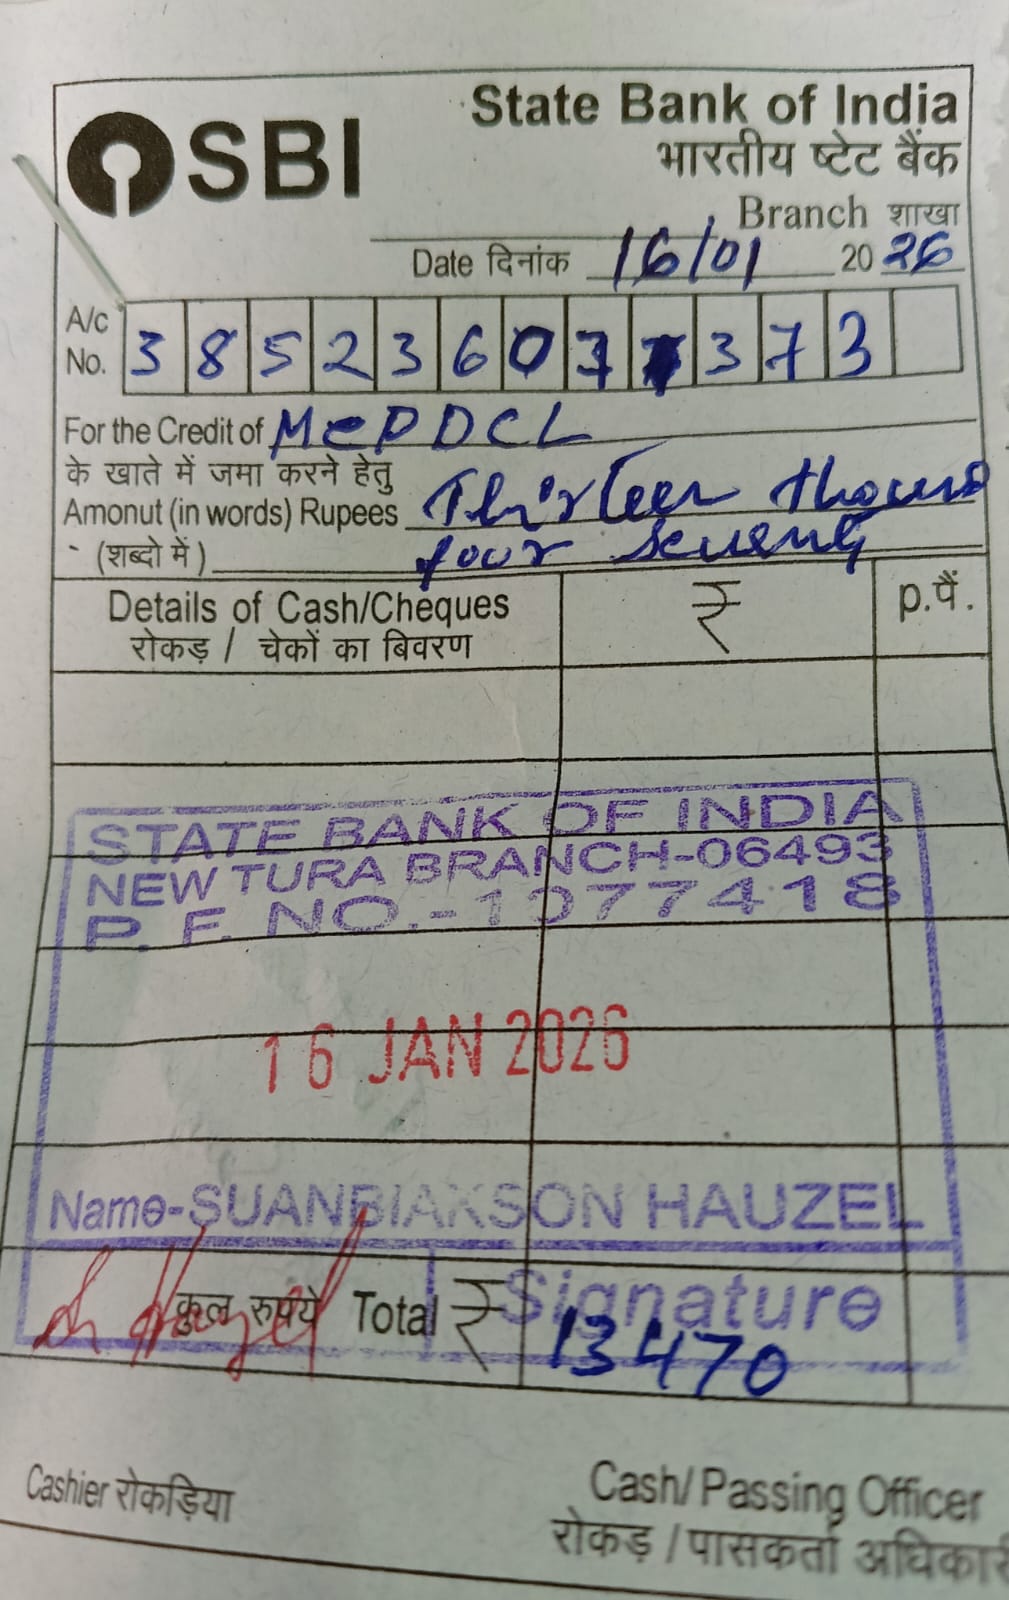 SBI
State Bank of India
भारतीय ष्टेट बैंक
Branch शाखा
Date दिनांक 16/01 2026
A/c No. 3 8 5 2 3 6 0 7 3 7 3
For the Credit of MePDCL
के खाते में जमा करने हेतु
Amonut (in words) Rupees Thirteen thousand
(शब्दो में) four seventy
Details of Cash/Cheques ₹ p.पैं.
रोकड़ / चेकों का बिवरण
STATE BANK OF INDIA
NEW TURA BRANCH-06493
P. F. NO.-1077418
16 JAN 2026
Name-SUANBIAKSON HAUZEL
Signature
कुल रुपये Total ₹ 13470
Cashier रोकड़िया
Cash/Passing Officer
रोकड़ /पासकर्ता अधिकारी